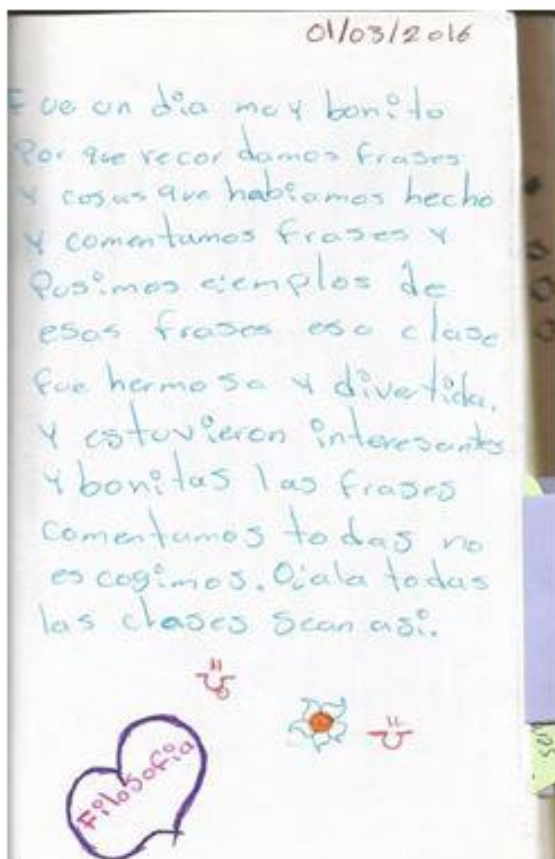 01/03/2016
Fue un dia muy bonito
Por que recordamos frases
y cosas que habiamos hecho
y comentamos frases y
Pusimos ejemplos de
esas frases esa clase
fue hermosa y divertida.
y estuvieron interesantes
y bonitas las frases
comentamos todas no
escogimos. Ojala todas
las clases sean asi.
Filosofia